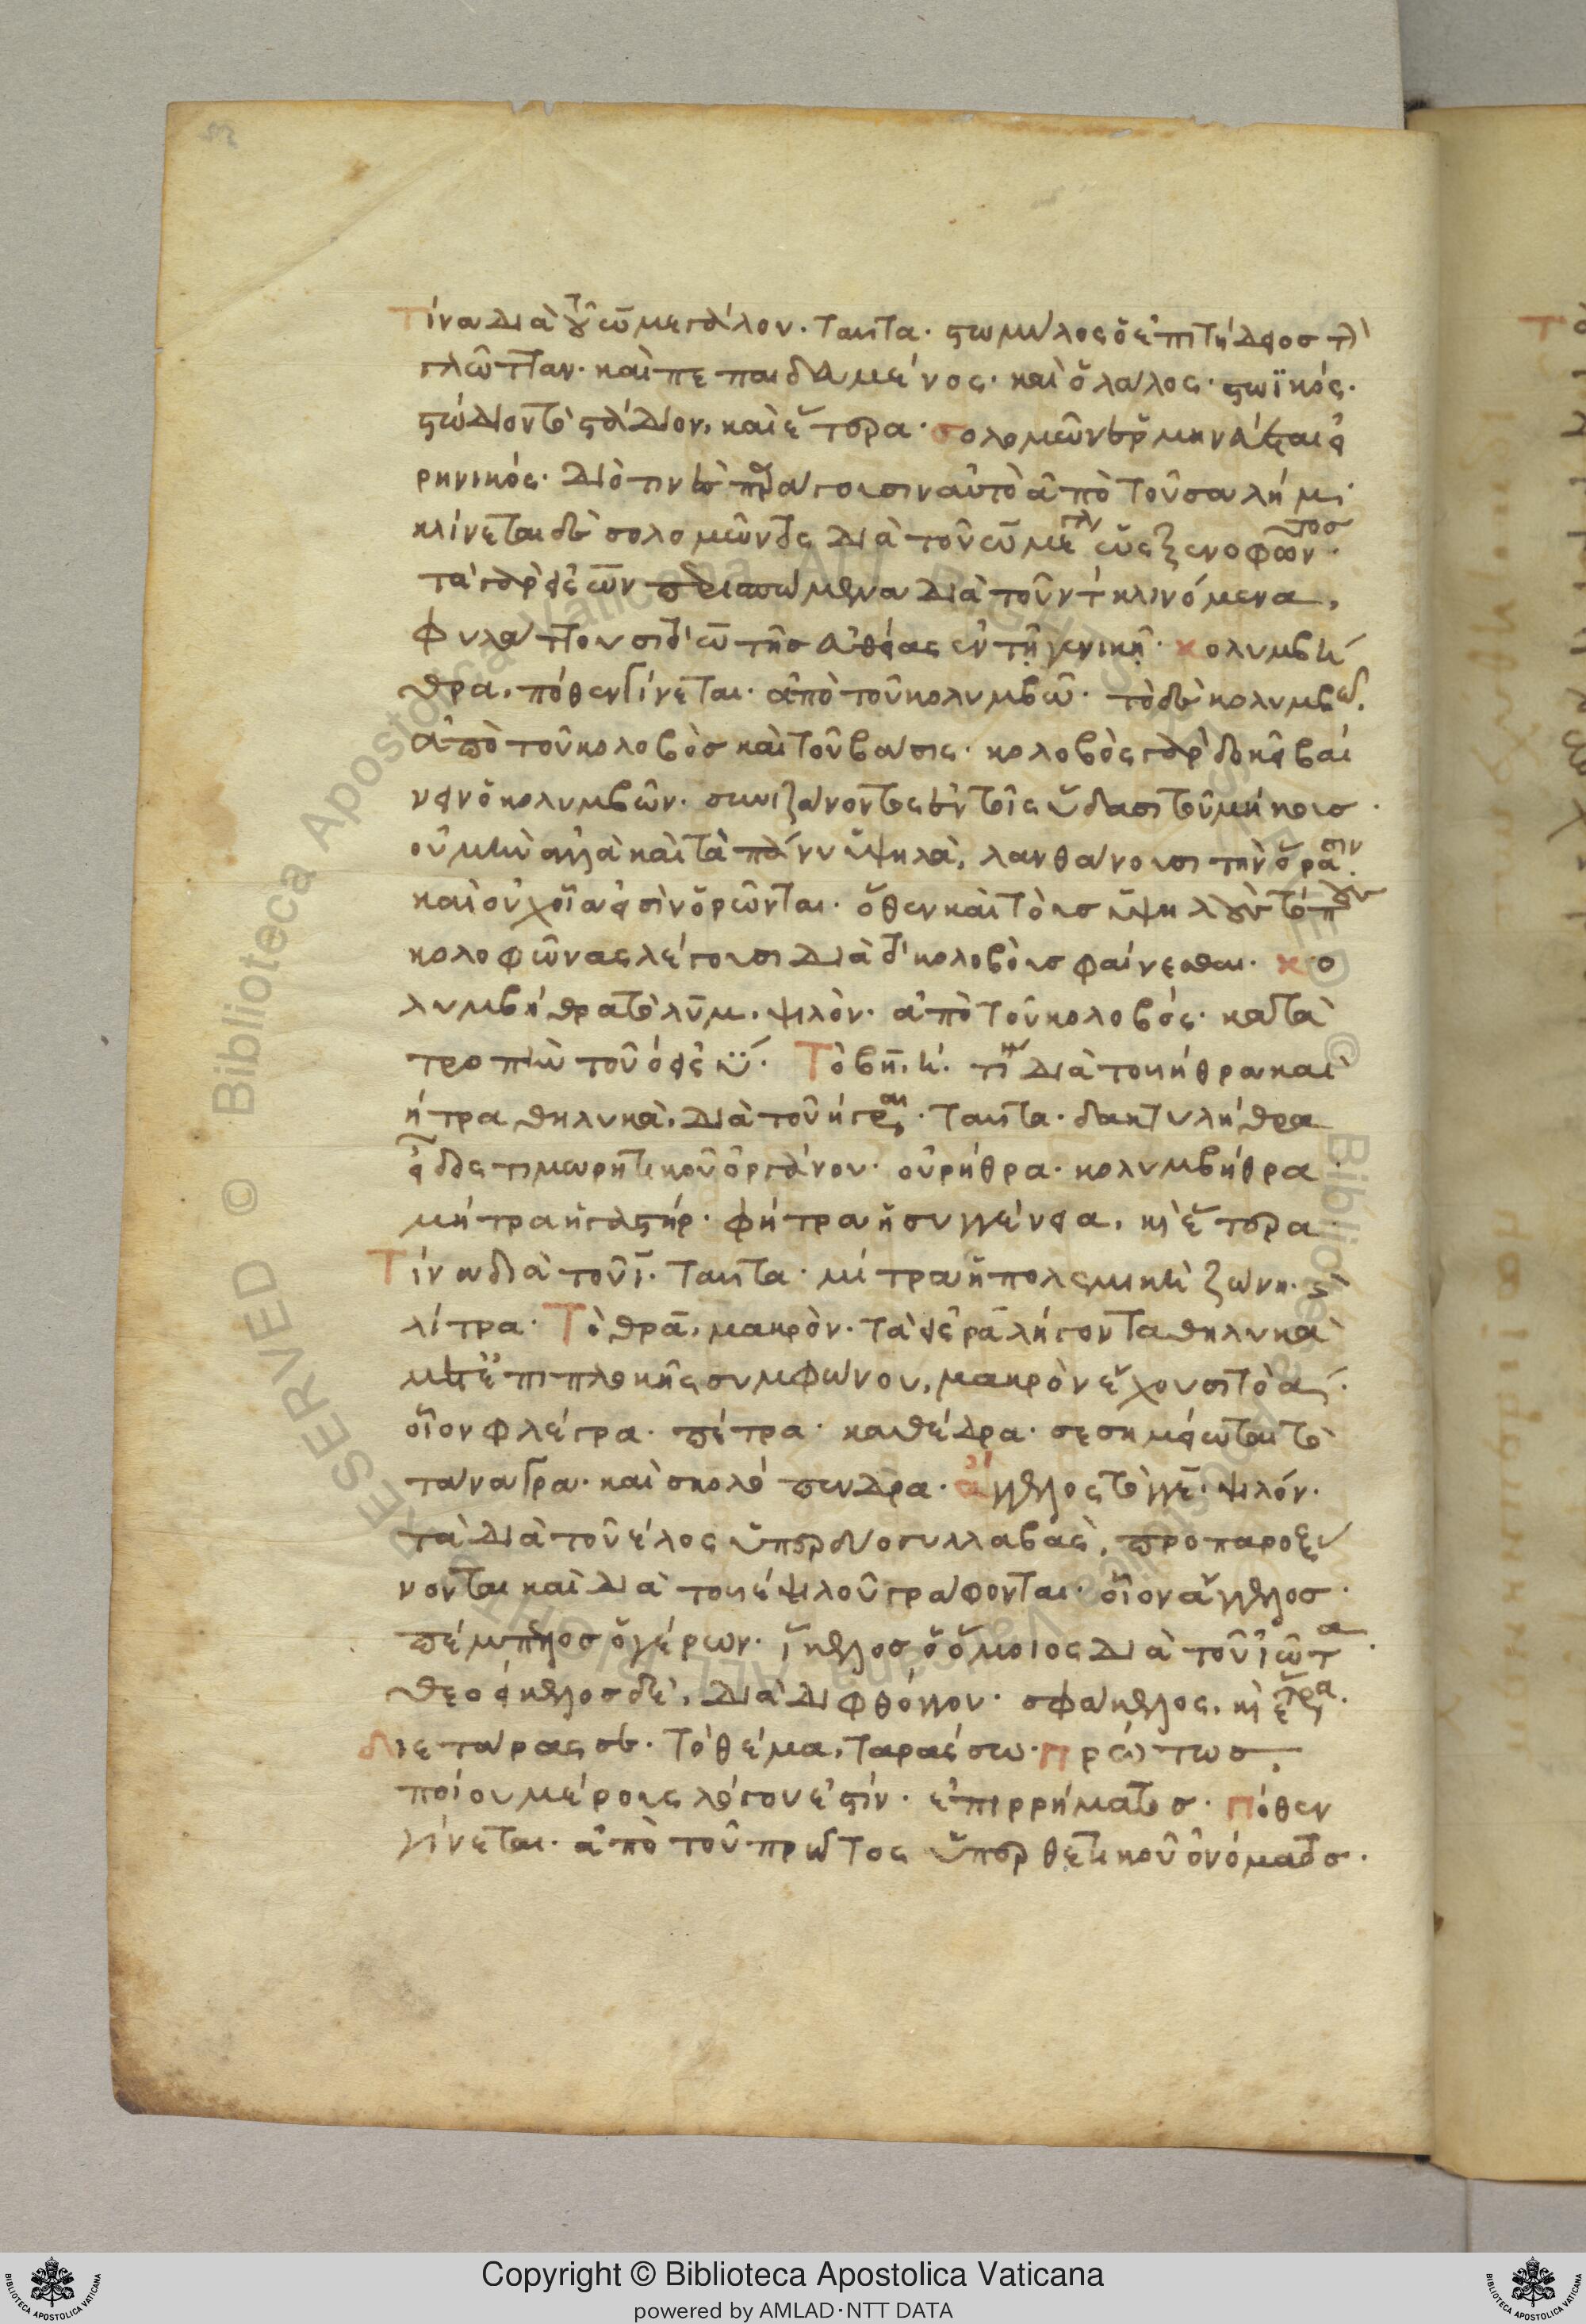 τίνα διὰ τοῦ ω̄ μεγάλου. ταῦτα. στωμύλος ὁ ἐπιτήδειος τὴν
γλῶτταν. καὶ πεπαιδευμένος. καὶ ὁ λάλος. στωϊκός.
στώδιον τὸ στάδιον. καὶ ἕτερα. σολομῶν ἑρμηνεύεται εἰ
ρηνικός. διότιπερ παράγουσιν αὐτὸ ἀπὸ τοῦ σαλήμ.
κλίνεται δὲ σολομῶντος διὰ τοῦ ω̄ μεγάλου ὡς ξενοφῶντος.
τὰ γὰρ εἰς ω̄ν περισπώμενα διὰ τοῦ ντ κλινόμενα,
φυλάττουσι τὸ ω̄ τῆς εὐθείας ἐν τῇ γενικῇ. κολυμβή
θρα. πόθεν γίνεται. ἀπὸ τοῦ κολυμβῶ. τὸ δὲ κολυμβῶ.
ἀπὸ τοῦ κολοβὸς καὶ τοῦ βάσις. κολοβὸς γὰρ δοκεῖ βαί
νειν ὁ κολυμβῶν. συνιζάνοντες ἐν τοῖς ὕδασι τοῦ μήκους.
οὐ μὴν ἀλλὰ καὶ τὰ πάνυ ὑψηλὰ, λανθάνουσι τὴν ὅρασιν.
καὶ οὐχ οἷά εἰσιν ὁρῶνται. ὅθεν καὶ τοὺς ὑψηλοὺς τόπους
κολοφῶνας λέγουσι διὰ τὸ κολοβοὺς φαίνεσθαι. κο
λυμβήθρα τὸ λῡμ. ψιλὸν. ἀπὸ τοῦ κολοβός. κατὰ
τροπὴν τοῦ ο εἰς ϋ. Τὸ βη̄. η. τί. τὰ διὰ τοῦ ήθρα καὶ
ήτρα θηλυκὰ. διὰ τοῦ η γράφεται. ταῦτα. δακτυλήθρα
εἶδος τιμωρητικοῦ ὀργάνου. οὐρήθρα. κολυμβήθρα.
μήτρα ἡ γαστήρ. φήτρα ἡ συγγένεια. καὶ ἕτερα.
Τίνα διὰ τοῦ ῑ. ταῦτα. μίτρα ἡ πολεμικὴ ζώνη. καὶ
λίτρα. Τὸ θρᾱ, μακρὸν. τὰ εἰς ρᾱ λήγοντα θηλυκὰ
μετ' ἐπιπλοκῆς συμφώνου, μακρὸν ἔχουσι τὸ α.
οἷον φλέγρα. πέτρα. καθέδρα. σεσημείωται τὸ
τάναγρα. καὶ σκολόπενδρα. ἄγγελος τὸ γγε̄. ψιλόν.
τὰ διὰ τοῦ έλος ὑπὲρ δύο συλλαβὰς, προπαροξύ
νονται καὶ διὰ τοῦ ε ψιλοῦ γράφονται. οἷον ἄγγελος.
πέμπελος ὁ γέρων. ἴκελος ὁ ὅμοιος διὰ τοῦ ἰῶτα.
θεοείκελος δὲ, διὰ διφθόγγου. σφάκελος. καὶ ἕτερα.
διετάραξε. τὸ θέμα, ταράσσω. πρώτως,
ποίου μέρους λόγου ἐστίν. ἐπιρρήματος. πόθεν
γίνεται. ἀπὸ τοῦ πρῶτος ὑπερθετικοῦ ὀνόματος.
Copyright © Biblioteca Apostolica Vaticana
powered by AMLAD·NTT DATA